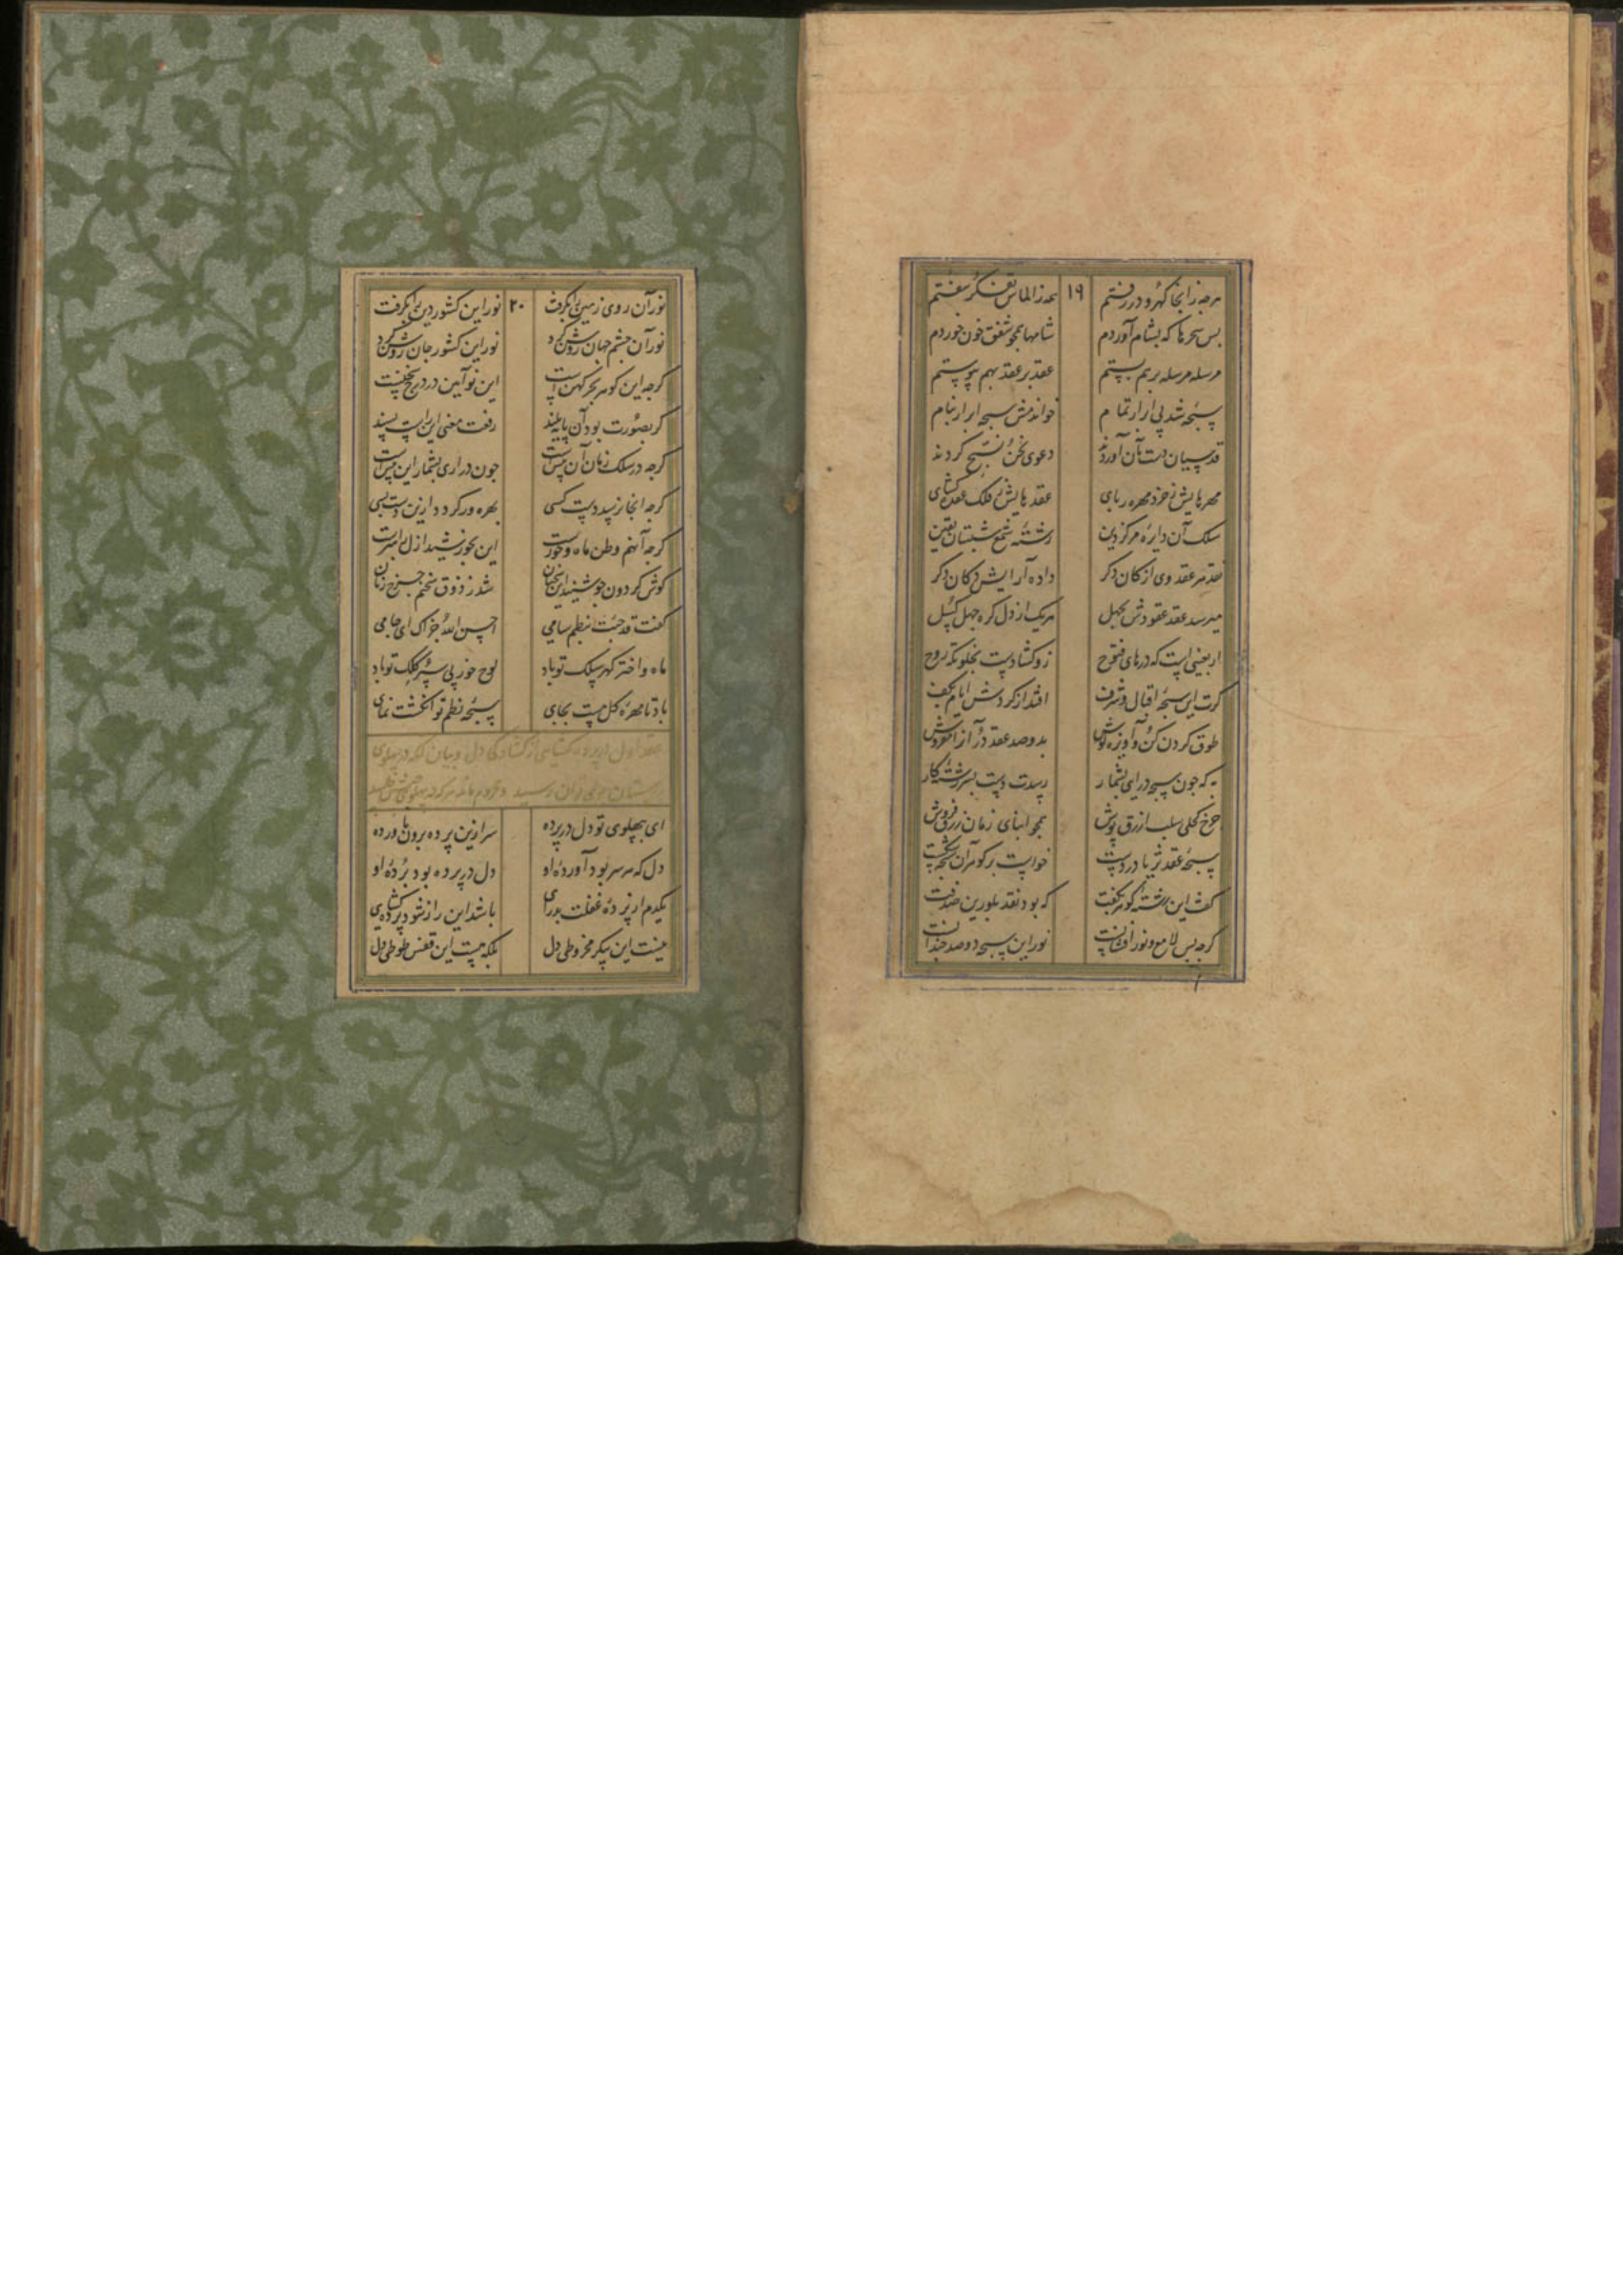 هرچه زانجا گهر و در رفتم ۱۹ همه ز الماس تفکر سفتم
بس سحرها که بشام آوردم شامها همچو شفق خون خوردم
مرسله مرسله برهم بستم عقد بر عقد بهم پیوستم
سبحه شد پی ابرار تمام خواندمش سبحه ابرار بنام
قدسیان دست بآن آوردند دعوی نحن نسبح کردند
مهرهایش ز خرد مهره ربای عقدهایش ز فلک عقده گشای
سلک آن دایره مرکز دین رشته شمع شبستان یقین
نقد هر عقد وی از کان دگر داده آرایش دکان دگر
میرسد عقد عقودش بچهل هر یک از دل گره جهل گسل
اربعینی است که درهای فتوح زو گشادست بخلوتگه روح
گرت این سبحه اقبال و شرف افتد از گردش ایام بکف
طوق گردن کن و آویزه گوش بدو صد عقد در آن را مفروش
به که چون سبحه درآیی بشمار رسدت دست بسررشته کار
چرخ کحلی سلب ازرق پوش همچو ابنای زمان زرق فروش
سبحه عقد ثریا در دست خواست بر گوهر آن سبحه شکست
گفت این رشته گوهر بکفت که بود نقد بلورین صدفت
گرچه بس لامع و نور افشانست نور این سبحه دو صد چندانست
نور آن روی زمین را بگرفت ۲۰ نور این کشور دین را بگرفت
نور آن چشم جهان روشن کرد نور این کشور جان روشن کرد
گرچه این گوهر بحر کهن است این نوآیین در درج سخنست
گر بصورت بود آن پایه بلند رفعت معنی این راست پسند
گرچه در سلک زمان آن پیش است چون درآری بشمار این بیش است
گرچه آنجا نرسد دست کسی بهره ور گردد ازین دست بسی
گرچه آنهم وطن ماه و خورست این بخورشید ازل راهبرست
گوش گردون چو شنید این سخنان شد ز ذوق سخنم چرخ زنان
گفت قد جئت بنظم سامی احسن الله جزاک ای جامی
ماه و اختر گهر سلک تو باد لوح خور پی سپر کلک تو باد
باد تا مهره گل هست بجای سبحه نظم تو انگشت نمای
عقد اول در پرده گشایی از گشادگی دل و بیان آنکه در پهلوی
ای بپهلوی تو دل در پرده سر ازین پرده برون ناورده
دل که هر سر بود آورده او دل در پرده بود برده او
یکدم از پرده غفلت بدرآی باشد این راز شود پرده گشای
نیست این پیکر مخروطی دل بلکه هست این قفس طوطی دل